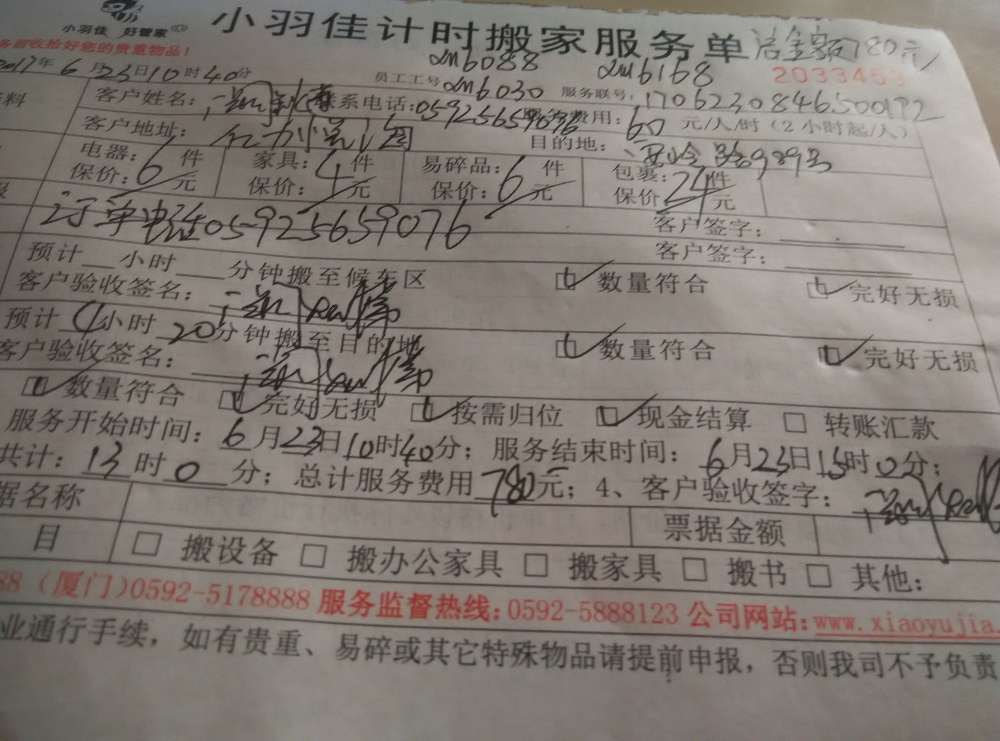 小羽佳 好管家
小羽佳计时搬家服务单 总金额780元
务前收拾好您的贵重物品!
2m6088 2m6168
2017年6月23日10时40分 员工工号 2m6030 服务联号: 2033453
170623084650019
客户姓名: 联系电话:05925659076 费用:60元/人/时(2小时起/人)
客户地址: 目的地: 989号
电器:6件 家具:4件 易碎品:6件 包裹:24件
保价: 元 保价: 元 保价: 元 保价: 元
订单电话05925659076 客户签字:
客户签字:
预计 小时 分钟搬至候车区 数量符合 完好无损
客户验收签名:
预计4小时20分钟搬至目的地 数量符合 完好无损
客户验收签名:
数量符合 完好无损 按需归位 现金结算 转账汇款
服务开始时间:6月23日10时40分;服务结束时间:6月23日15时0分;
共计:13时0分;总计服务费用780元;4、客户验收签字:
据名称 票据金额
目 搬设备 搬办公家具 搬家具 搬书 其他:
88(厦门)0592-5178888 服务监督热线:0592-5888123 公司网站:www.xiaoyujia.
业通行手续,如有贵重、易碎或其它特殊物品请提前申报,否则我司不予负责